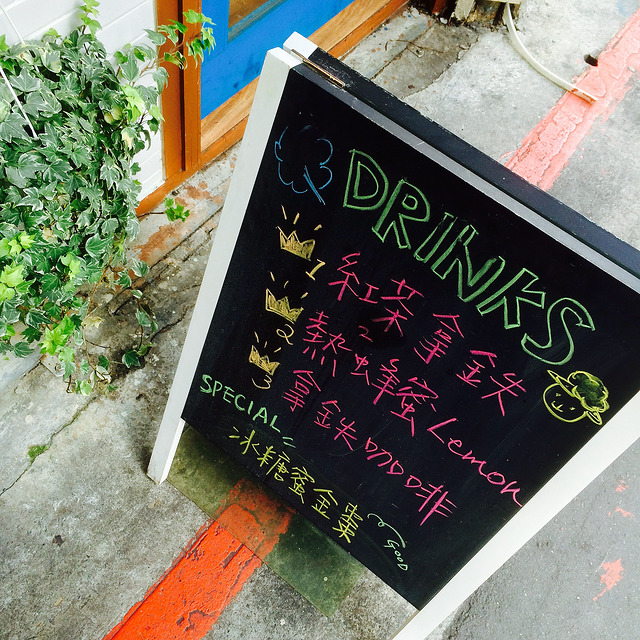 DRINKS
1 紅茶拿鉄
2 熱蜂蜜Lemon
3 拿鉄咖啡
SPECIAL:
冰糖蜜金棗
GOOD